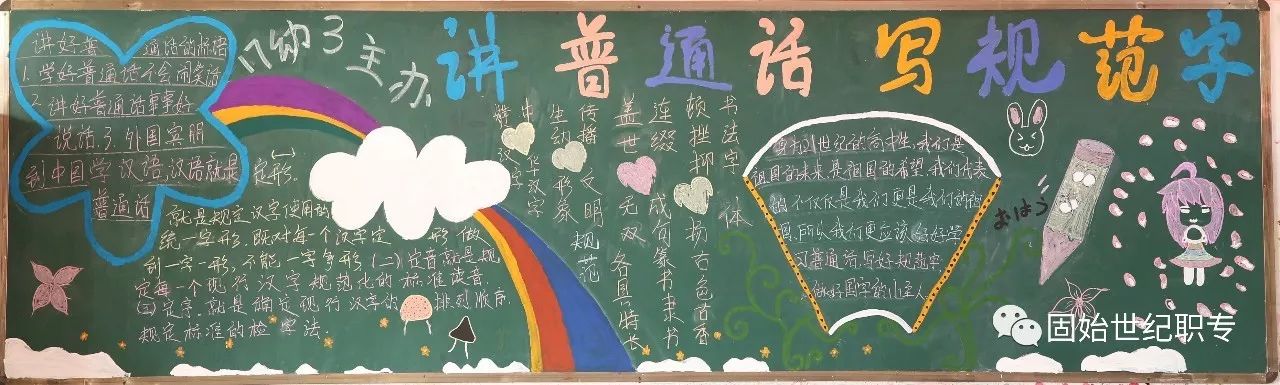 讲普通话写规范字
17幼3主办
讲好普通话的标语
1.学好普通话不会闹笑话
2.讲好普通话事事好
说话.3.外国宾朋
到中国学汉语,汉语就是
普通话
定形.
就是规定汉字使用的
统一字形.既对每一个汉字定一形做
到一字一形,不能一字多形(二)定音就是规
定每一个现行汉字规范化的标准读音
四定字.就是确定现行汉字的排列顺序.
规定标准的检字法.
书法字体
顿挫抑扬古色古香
连缀成句篆书隶书
盖世无双各具特长
传播文明规范
生动形象
中华汉字
祖国的未来,是祖国的希望,我们代表
的不仅仅是我们更是我们的祖
习普通话,写好规范字
做好国字的小主人
おはう
固始世纪职专